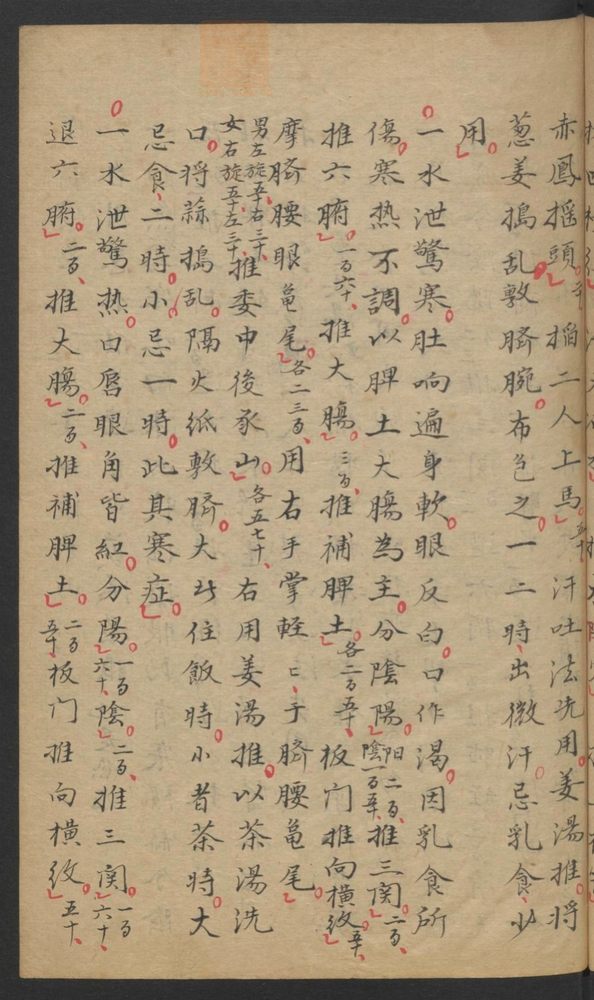 赤鳳搖頭二十掐二人上馬五十汗吐法先用姜湯推將
葱姜搗乱敷臍腕布包之一二時出微汗忌乳食少
用
一水泄驚寒肚响遍身軟眼反白口作渴因乳食所
傷寒热不調以脾土大膓為主分陰陽阳二百陰一百五十推三関二百
推六腑一百六十推大膓三百推補脾土各二百五十板门推向橫紋五十
摩臍腰眼龟尾各二三百用右手掌軽匕于臍腰龟尾
男左旋五十右三十女右旋五十左三十推委中後承山各五七十右用姜湯推以茶湯洗
口将蒜搗乱隔火纸敷臍大片住飯時小者茶時大
忌食二時小忌一時此其寒症
一水泄驚热口唇眼角皆紅分陽一百六十陰二百推三関一百六十
退六腑二百推大膓二百推補脾土二百五十板门推向橫紋五十